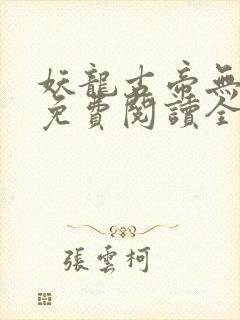 妖龍古帝無
免費閱讀全
張雲柯